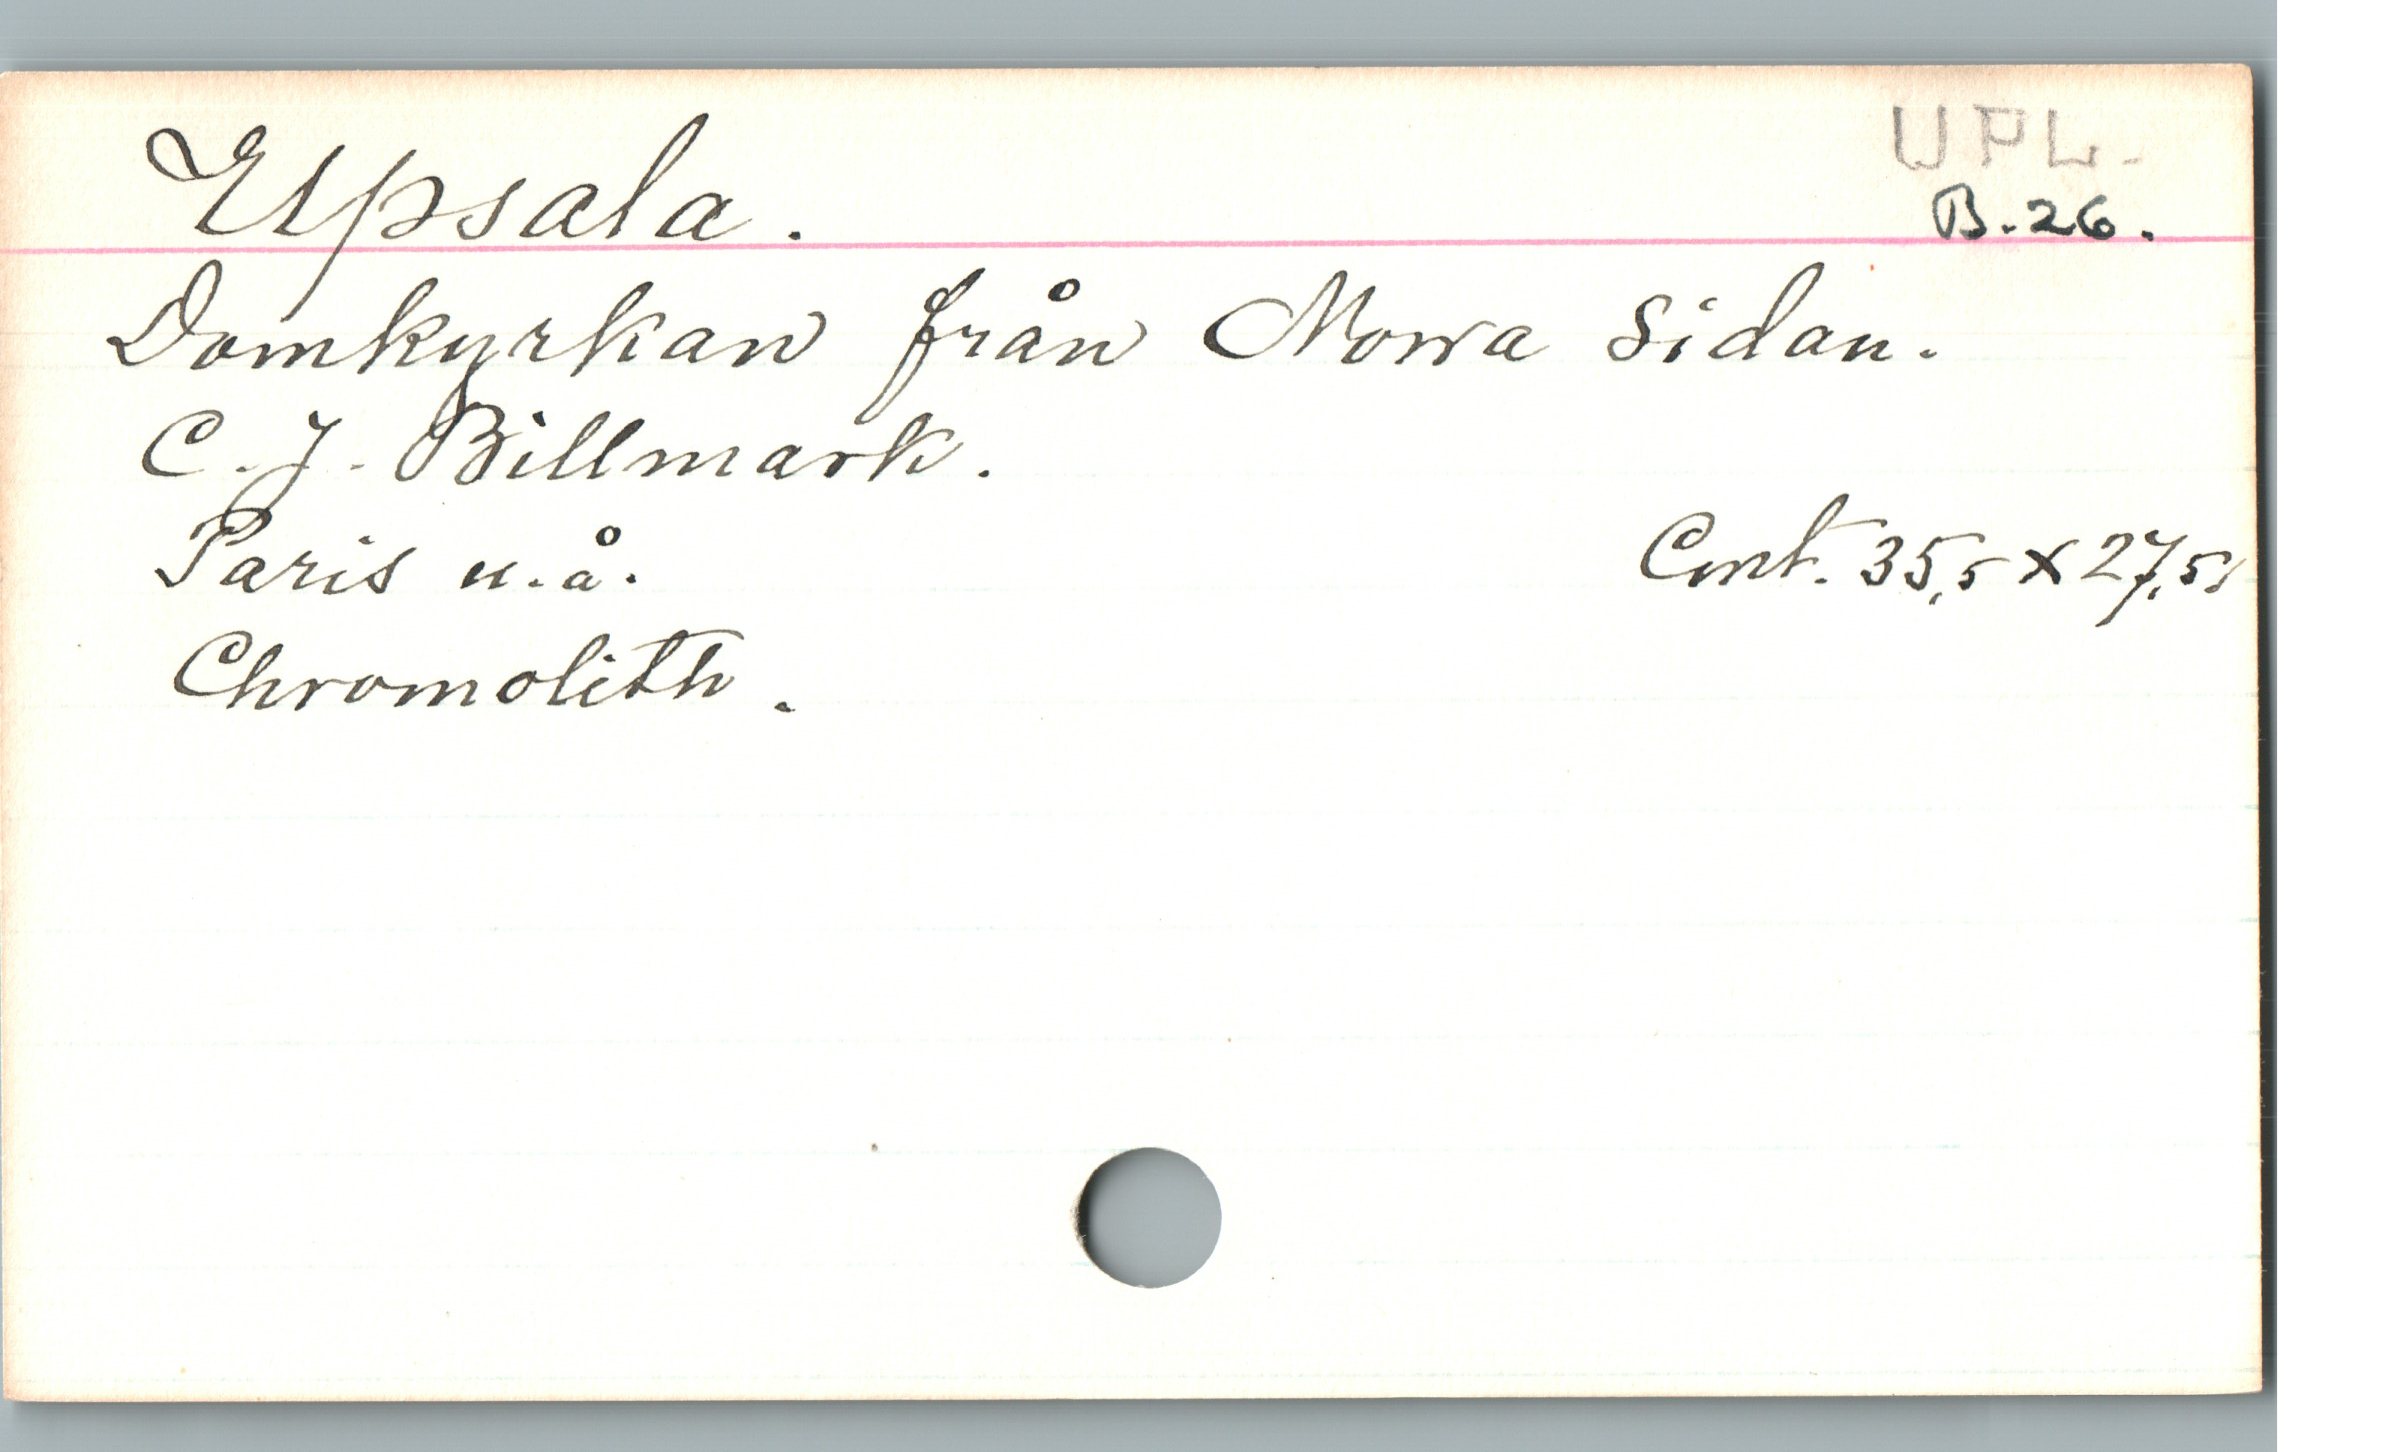 UPL.
Upsala.
B. 26.
Domkyrkan från Norra Sidan.
C. J. Billmark.
Paris u. å.
Cent. 35,5 x 27,5
Chromolith.